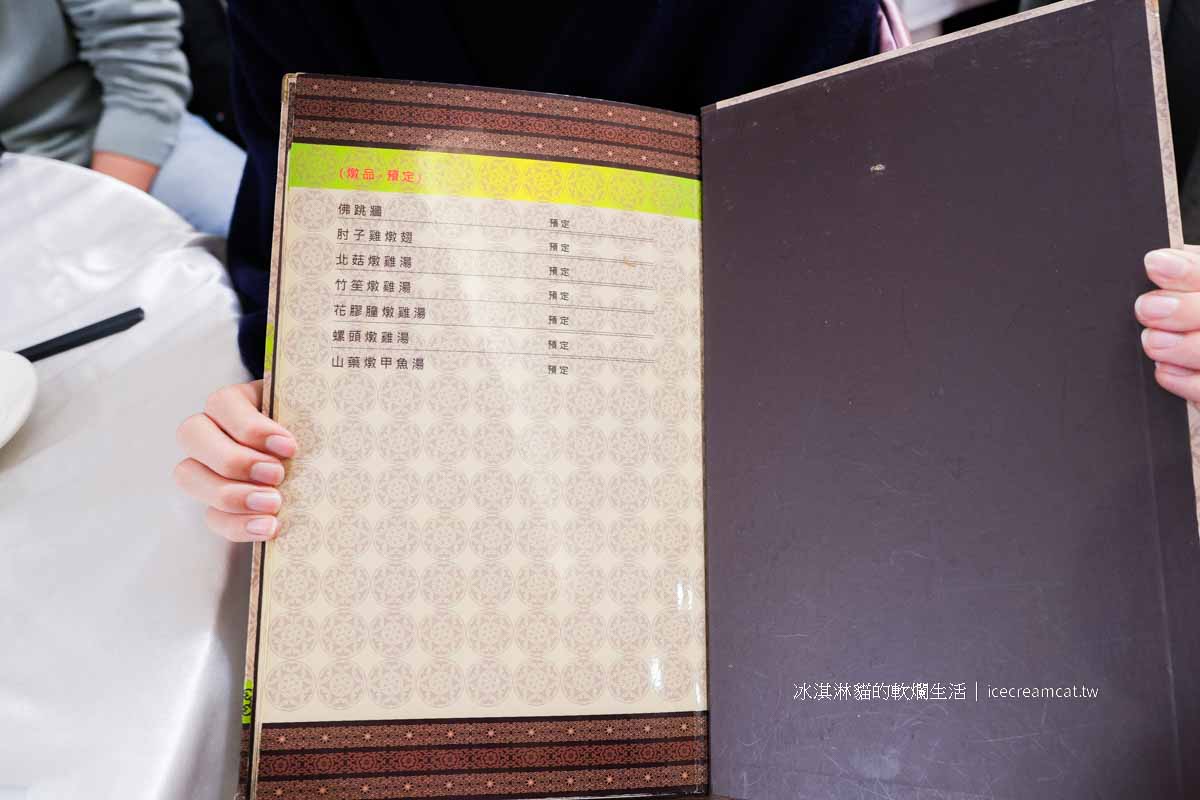 (燉品-預定)
佛跳牆 預定
肘子雞燉翅 預定
北菇燉雞湯 預定
竹笙燉雞湯 預定
花膠膧燉雞湯 預定
螺頭燉雞湯 預定
山藥燉甲魚湯 預定
冰淇淋貓的軟爛生活｜icecreamcat.tw